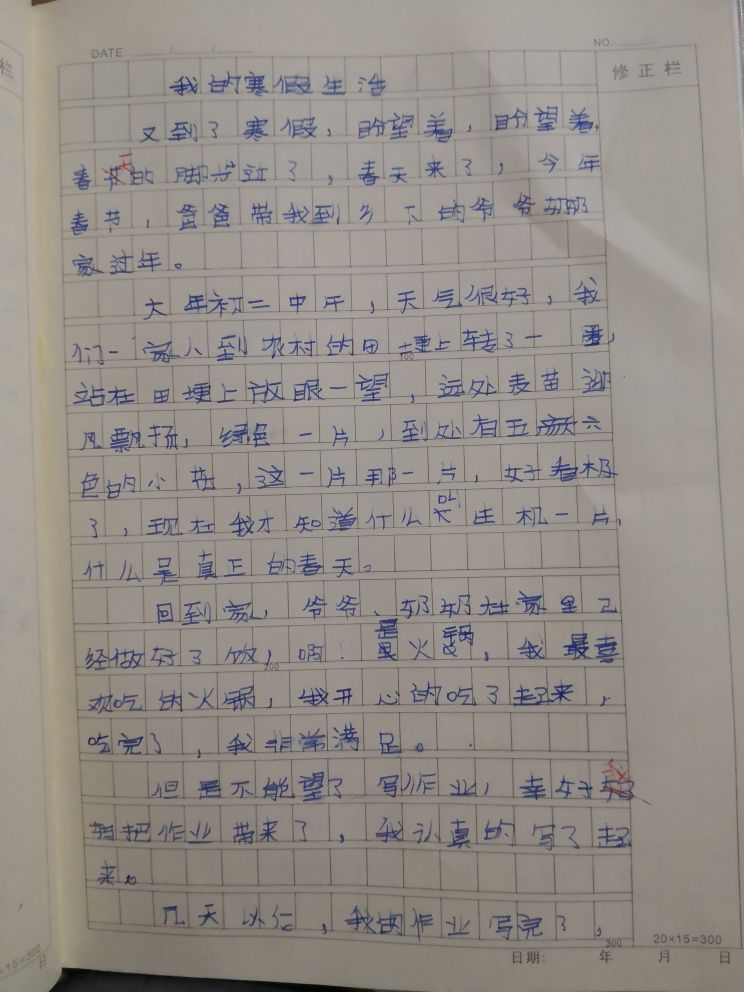 DATE / /
NO.
修正栏
我的寒假生活
又到了寒假，盼望着，盼望着，
春天的脚步近了，春天来了，今年
春节，爸爸带我到乡下的爷爷奶奶
家过年。
大年初二中午，天气很好，我
们一家人到农村的田埂上转了一圈，
站在田埂上放眼一望，远处麦苗迎
风飘扬，绿色一片，到处有五颜六
色的小花，这一片那一片，好看极
了，现在我才知道什么叫生机一片，
什么是真正的春天。
回到家，爷爷、奶奶在家里已
经做好了饭，啊！是火锅，我最喜
欢吃的火锅，我开心的吃了起来，
吃完了，我非常满足。
但是不能望了写作业，幸好我
把作业带来了，我认真的写了起
来。
几天以后，我的作业写完了，
100
200
300
20×15=300
日期: 年 月 日
×15=300
日
栏